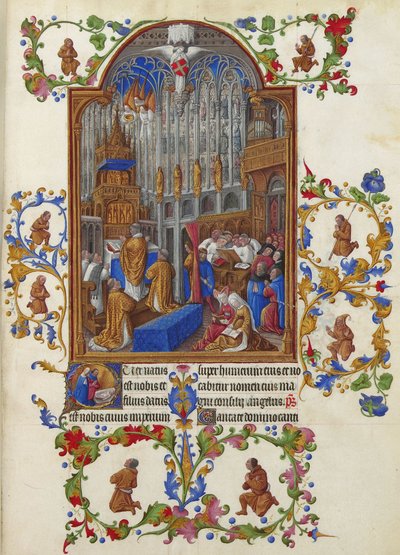 Puer natus
est nobis et
filius datus
est nobis cuius imperium
super humerum eius et uo
cabitur nomen eius ma
gni consilij angelus. Ps
Cantate domino canti